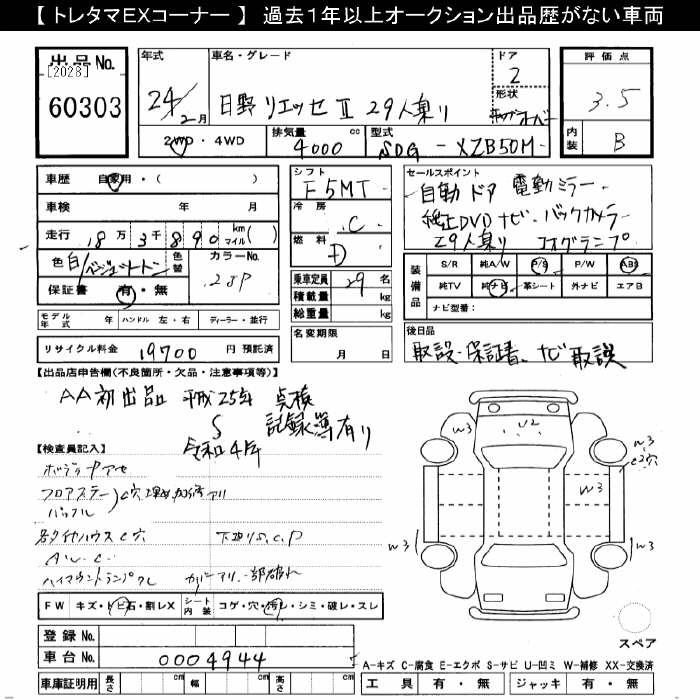 【 トレタマEXコーナー 】 過去１年以上オークション出品歴がない車両
出品No.
[2028]
60303
年式
24/2月
車名・グレード
日野 リエッセ Ⅱ 29人乗り
ドア
2
形状
評価点
3.5
内装
B
2WD・4WD
排気量
4000 cc
型式
SDG - XZB50M-
車歴
自家用・( )
車検
年 月
走行
18万3千890 km(マイル)
色
白/ベージュツートン
色替
カラーNo.
2JP
保証書
有・無
モデル年式
年
ハンドル 左・右
ディーラー・並行
リサイクル料金
19700 円 預託済
シフト
F5MT
冷房
C
燃料
D
乗車定員
29名
積載量
kg
総重量
kg
名変期限
月 日
セールスポイント
自動ドア 電動ミラー
純正DVDナビ・バックカメラ
29人乗り フォグランプ
装備品
S/R 純A/W P/S P/W ABS
純TV 純ナビ 革シート 外ナビ エアB
ナビ型番：
後日品
取説・保証書、ナビ取説
【出品店申告欄(不良箇所・欠品・注意事項等)】
AA初出品 平成25年 点検
S 記録簿有り
令和4年
【検査員記入】
ボディ
フロアステー
バッフル
C穴
アリ
各タイヤハウスC穴
下廻りS.C.P
A.W.C
ハイマウントランプクレ
カバーアリ 一部破れ
FW キズ・トビ石・割レX
シート内装 コゲ・穴・汚レ・シミ・破レ・スレ
登録No.
車台No.
0004944
車庫証明用
長さ cm
幅 cm
高さ cm
W3
U2
W3
C2穴
W3
W3
W3
スペア
A-キズ C-腐食 E-エクボ S-サビ U-凹ミ W-補修 XX-交換済
工具 有・無
ジャッキ 有・無